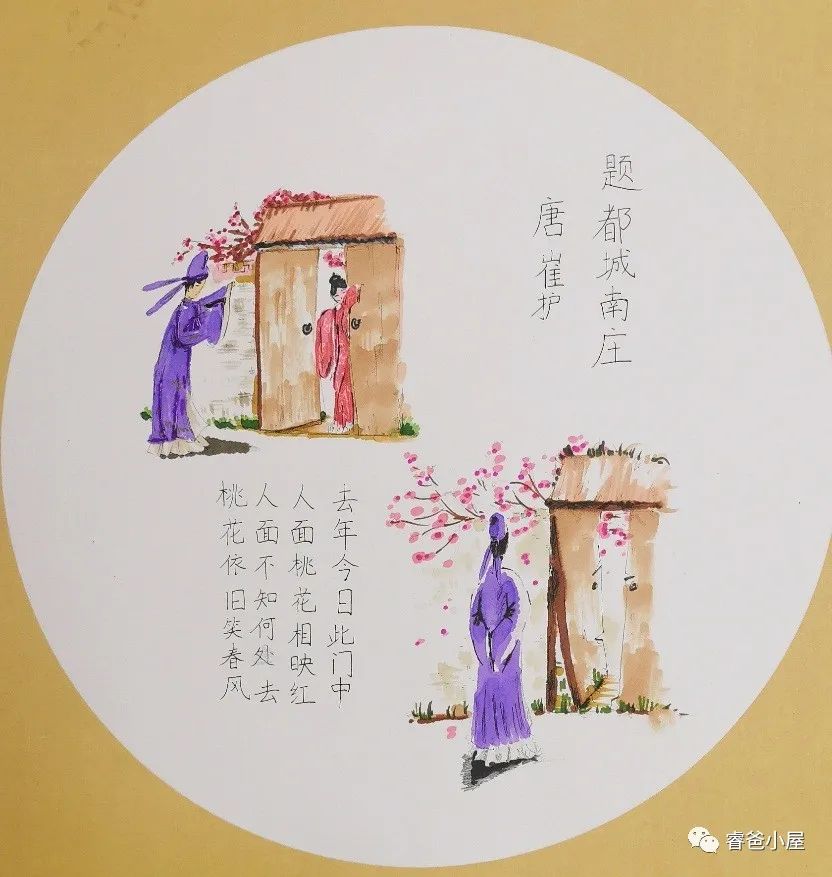 题都城南庄
唐 崔护
去年今日此门中
人面桃花相映红
人面不知何处去
桃花依旧笑春风
睿爸小屋